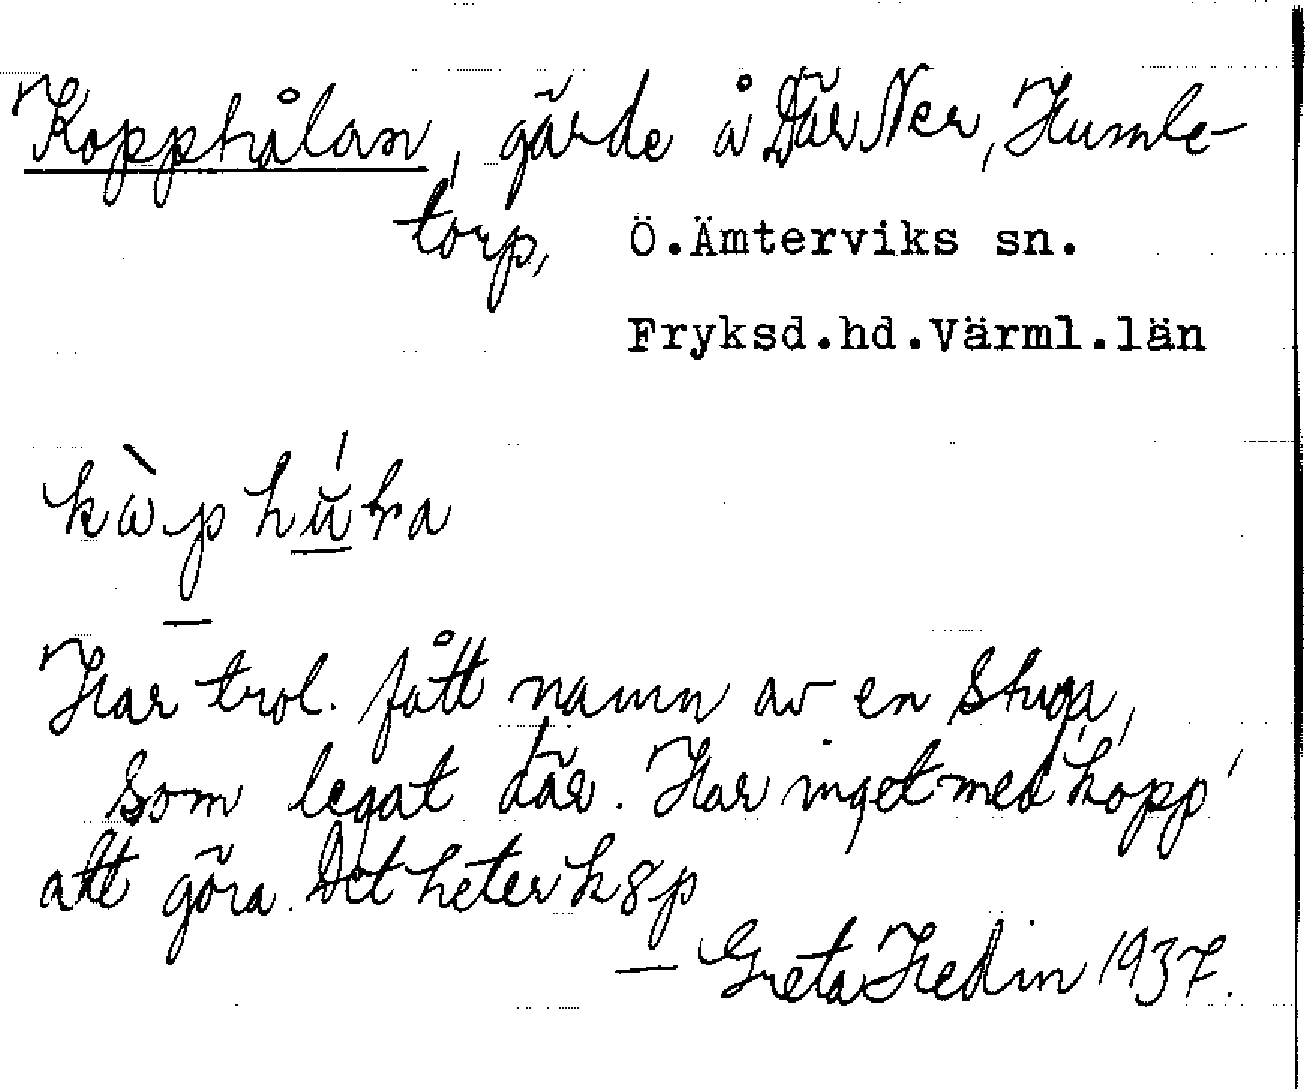 Kopphålan, gärde å Där Ner, Humle-
torp, Ö.Ämterviks sn.
Fryksd.hd.Värml.län
Har trol. fått namn av en stuga,
som legat där. Har inget med 'kopp'
att göra. Det heter k8p
Greta Hedin 1937.